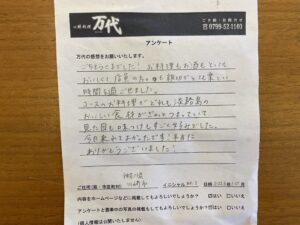 万代
ご予約・お問合せ
0799-52-1103
アンケート
万代の感想をお願いいたします。
ごちそうさまでした! お料理もお酒もとても
おいしく店員の方々も親切で
時間を過ごせました。
コースのお料理がどれも淡路島の
おいしい食材がぎゅっとつまっていて
見た目も味つけもすごく好みでした。
今日来れてよかったです!本当に
ありがとうございました!
ご住所(県・市区町村)
イニシャル
日時
内容をホームページなどに掲載してもよろしいでしょうか? はい いいえ
アンケートと食事中の写真の掲載もしてもよろしいでしょうか? はい いいえ
(個人情報は公開いたしません)